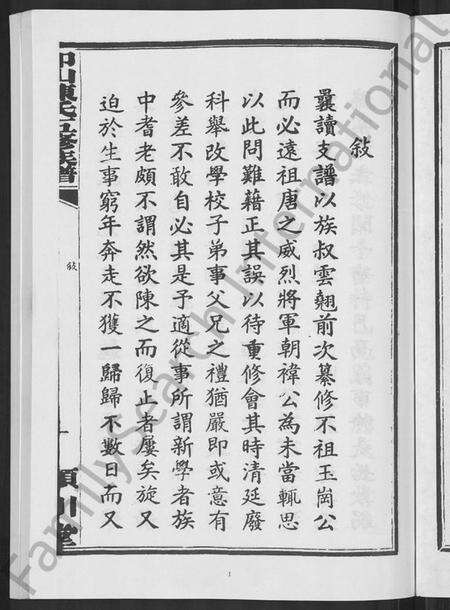 敍
曩讀支譜以族叔雲翹前次纂修不祖玉崗公
而必遠祖唐之威烈將軍朝禕公為未當輒思
以此問難藉正其誤以待重修會其時清廷廢
科舉改學校子弟事父兄之禮猶嚴即或意有
參差不敢自必其是予適從事所謂新學者族
中耆老頗不謂然欲陳之而復止者屢矣旋又
迫於生事窮年奔走不獲一歸歸不數日而又
山陳氏五修族譜
敍
川堂
FamilySearch International
1